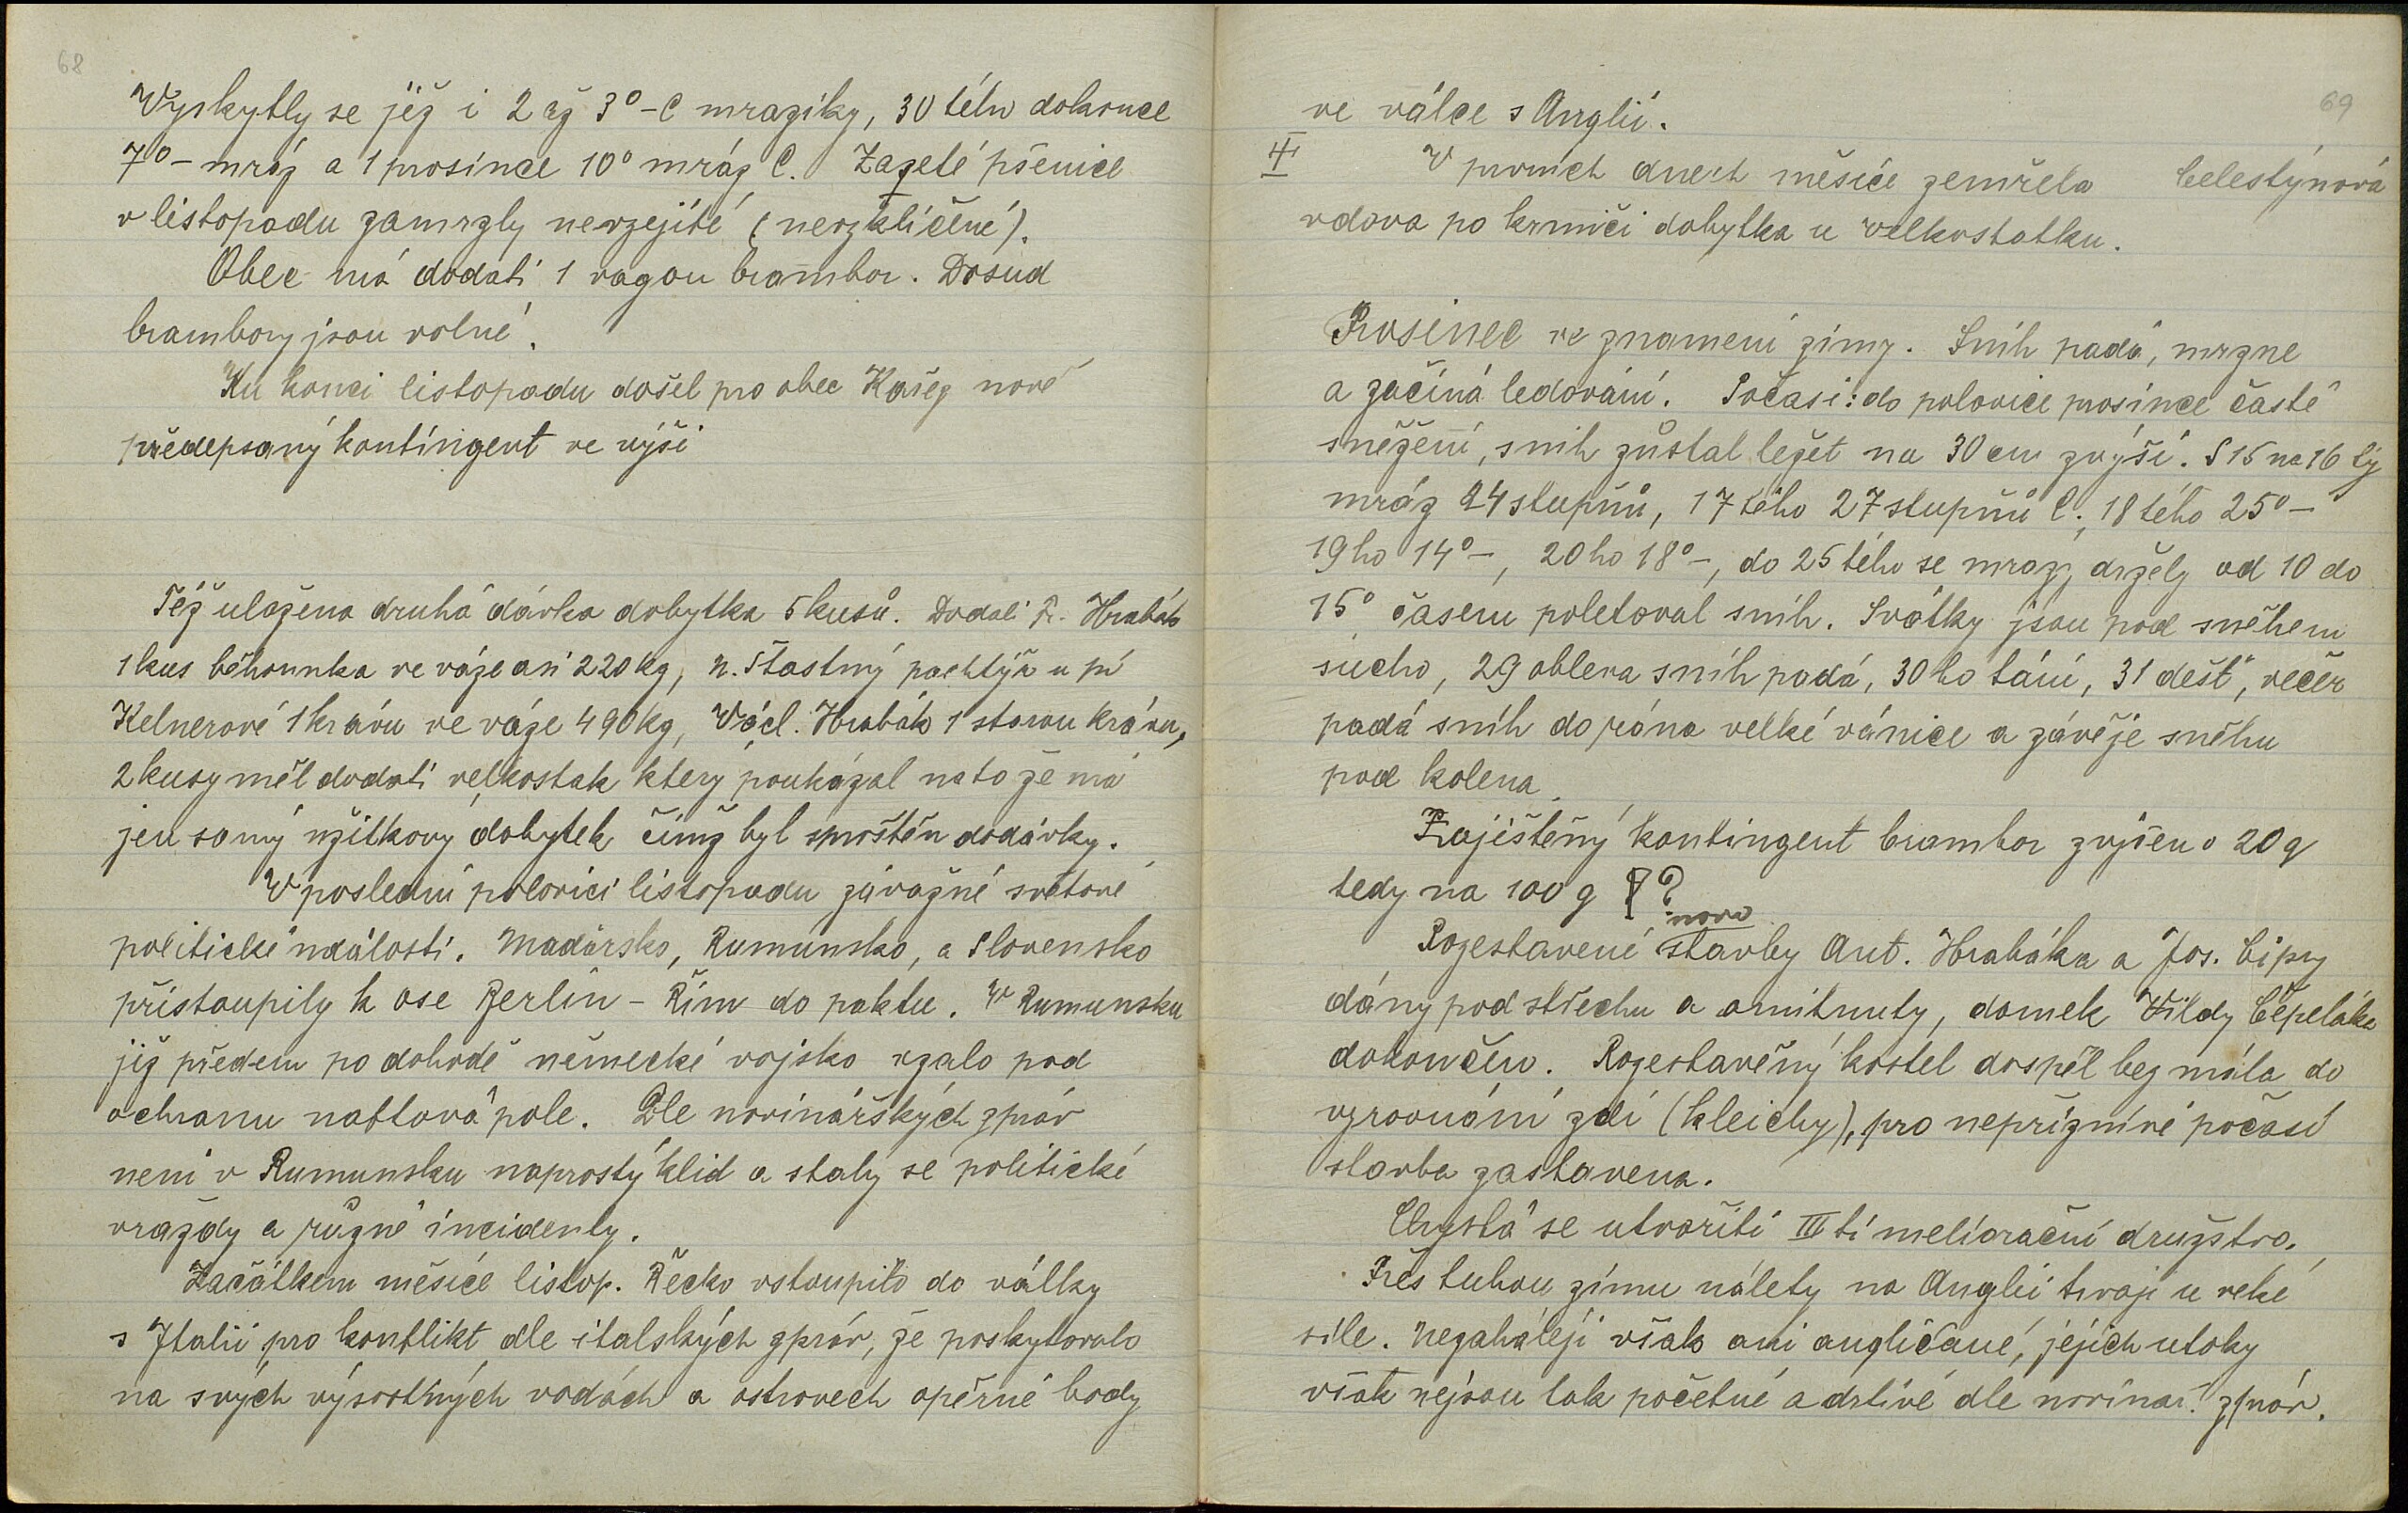 68
Vyskytly se již i 2 až 3° - C mrazíky, 30 tého dokonce
7° - mráz a 1 prosince 10° mráz C. Zaseté pšenice
v listopadu zamrzly nevzejité (nevzklíčené).
Obec má dodati 1 vagon brambor. Dosud
brambory jsou volné.
Ku konci listopadu došel pro obec nové
předepsaný kontingent ve výši
Též uložena druhá dávka dobytka 5 kusů. Dodali Fr. Hrabák
1 kus běhounka ve váze asi 220 kg, n. Šťastný pachtýř u pí
Kelnerové 1 krávu ve váze 490 kg, Václ. Hrabák 1 starou krávu,
2 kusy měl dodati velkostak ktery poukázal na to že má
jen samý užitkovy dobytek čímž byl sproštěn dodávky.
V poslední polovici listopadu závažné světové
politické události. Madarsko, Rumunsko, a Slovensko
přistoupily k ose Berlín - Řím do paktu. V Rumunsku
již předem po dohodě německé vojsko vzalo pod
ochranu naftová pole. Dle novinářských zpráv
není v Rumunsku naprostý klid a staly se politické
vraždy a různé incidenty.
Začátkem měsíce listop. Řecko vstoupilo do války
s Italii pro konflikt dle italských zpráv, že poskytovalo
na svých výsostných vodách a ostrovech opěrné body
69
ve válce s Anglií.
V prvních dnech měsíce zemřela Celestýnová
vdova po krmiči dobytka u velkostatku.
Prosinec ve znamení zimy. Sníh padá, mrzne
a začíná ledování. Počasí: do polovice prosince časté
sněžení, snih zůstal ležet na 30 cm zvýší. S 15 na 16 tý
mráz 24 stupňů, 17 tého 27 stupňů C., 18 tého 25° -
19 ho 14° -, 20 ho 18° -, do 25 tého se mrazy držely od 10 do
15° časem poletoval sníh. Svátky jsou pod sněhem
sucho, 29 obleva sníh padá, 30 ho tání, 31 dešť, večer
padá sníh do rána velké vánice a závěje sněhu
pod kolena.
Zajištěný kontingent brambor zvýšen o 20 q
tedy na 100 q ?
novo
Rozestavené stavby Ant. Hrabáka a Jos. Cipry
dány pod střechu a omítnuty, domek Vildy Čepeláka
dokončen. Rozestavěný kostel dospěl bez mála do
vyrovnání zdí (kleichy), pro nepříznivé počasí
stavba zastavena.
Chystá se utvořiti III tí meliorační družstvo.
Přes tuhou zimu nálety na Anglii trvají u velké
síle. Nezahálejí však ani angličané, jejich utoky
však nejsou tak početné a drtivé dle novinář. zpráv.